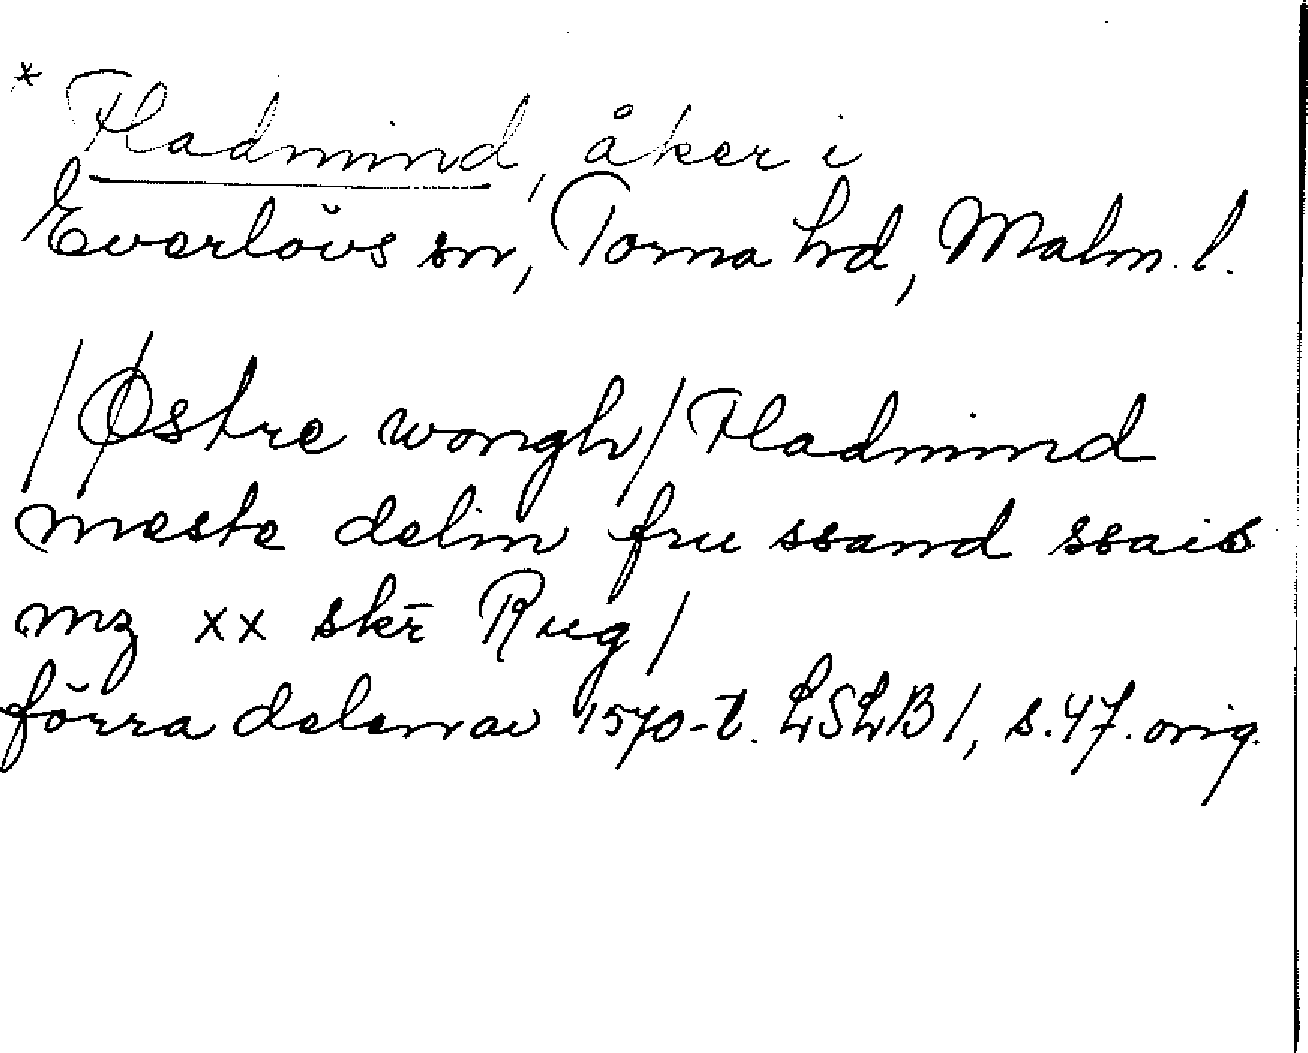 * Fladmind, åker i
Everlövs sn, Torna hd, Malm. l.
/Østre wongh/ Fladmind
meste delin fru ssand ssais
mz xx skr̄ Rug/
förra delen av 1570-t. LSLB 1, s. 47. orig.